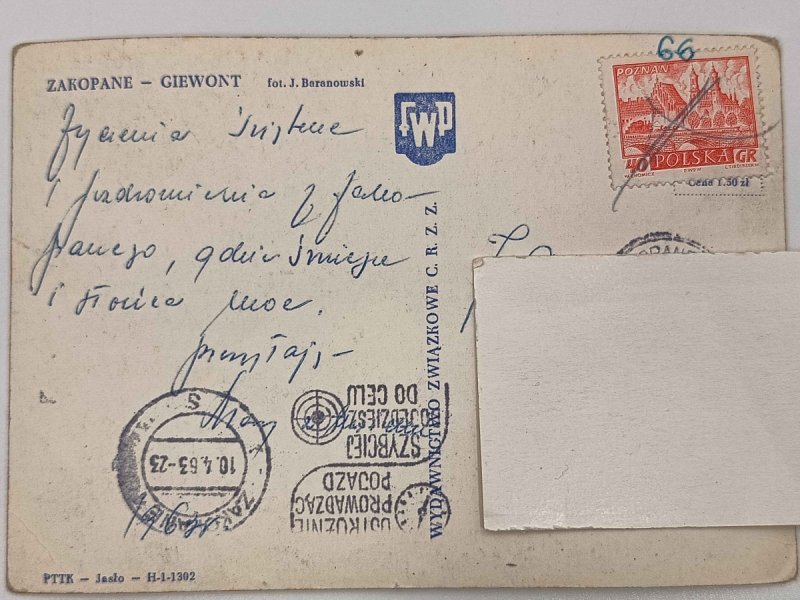 ZAKOPANE – GIEWONT fot. J. Baranowski
FWP
66
POZNAŃ
40 POLSKA GR
Cena 1.50 zł
Życzenia świąteczne
i pozdrowienia z Zako-
panego, gdzie śniegu
i słońca moc.
przesyłają –
WYDAWNICTWO ZWIĄZKOWE C. R. Z. Z.
OSTROŻNIE
PROWADZĄC
POJAZD
SZYBCIEJ
DOJEDZIESZ
DO CELU
ZAKOPANE
10.4.63-23
PTTK – Jasło – H-1-1302